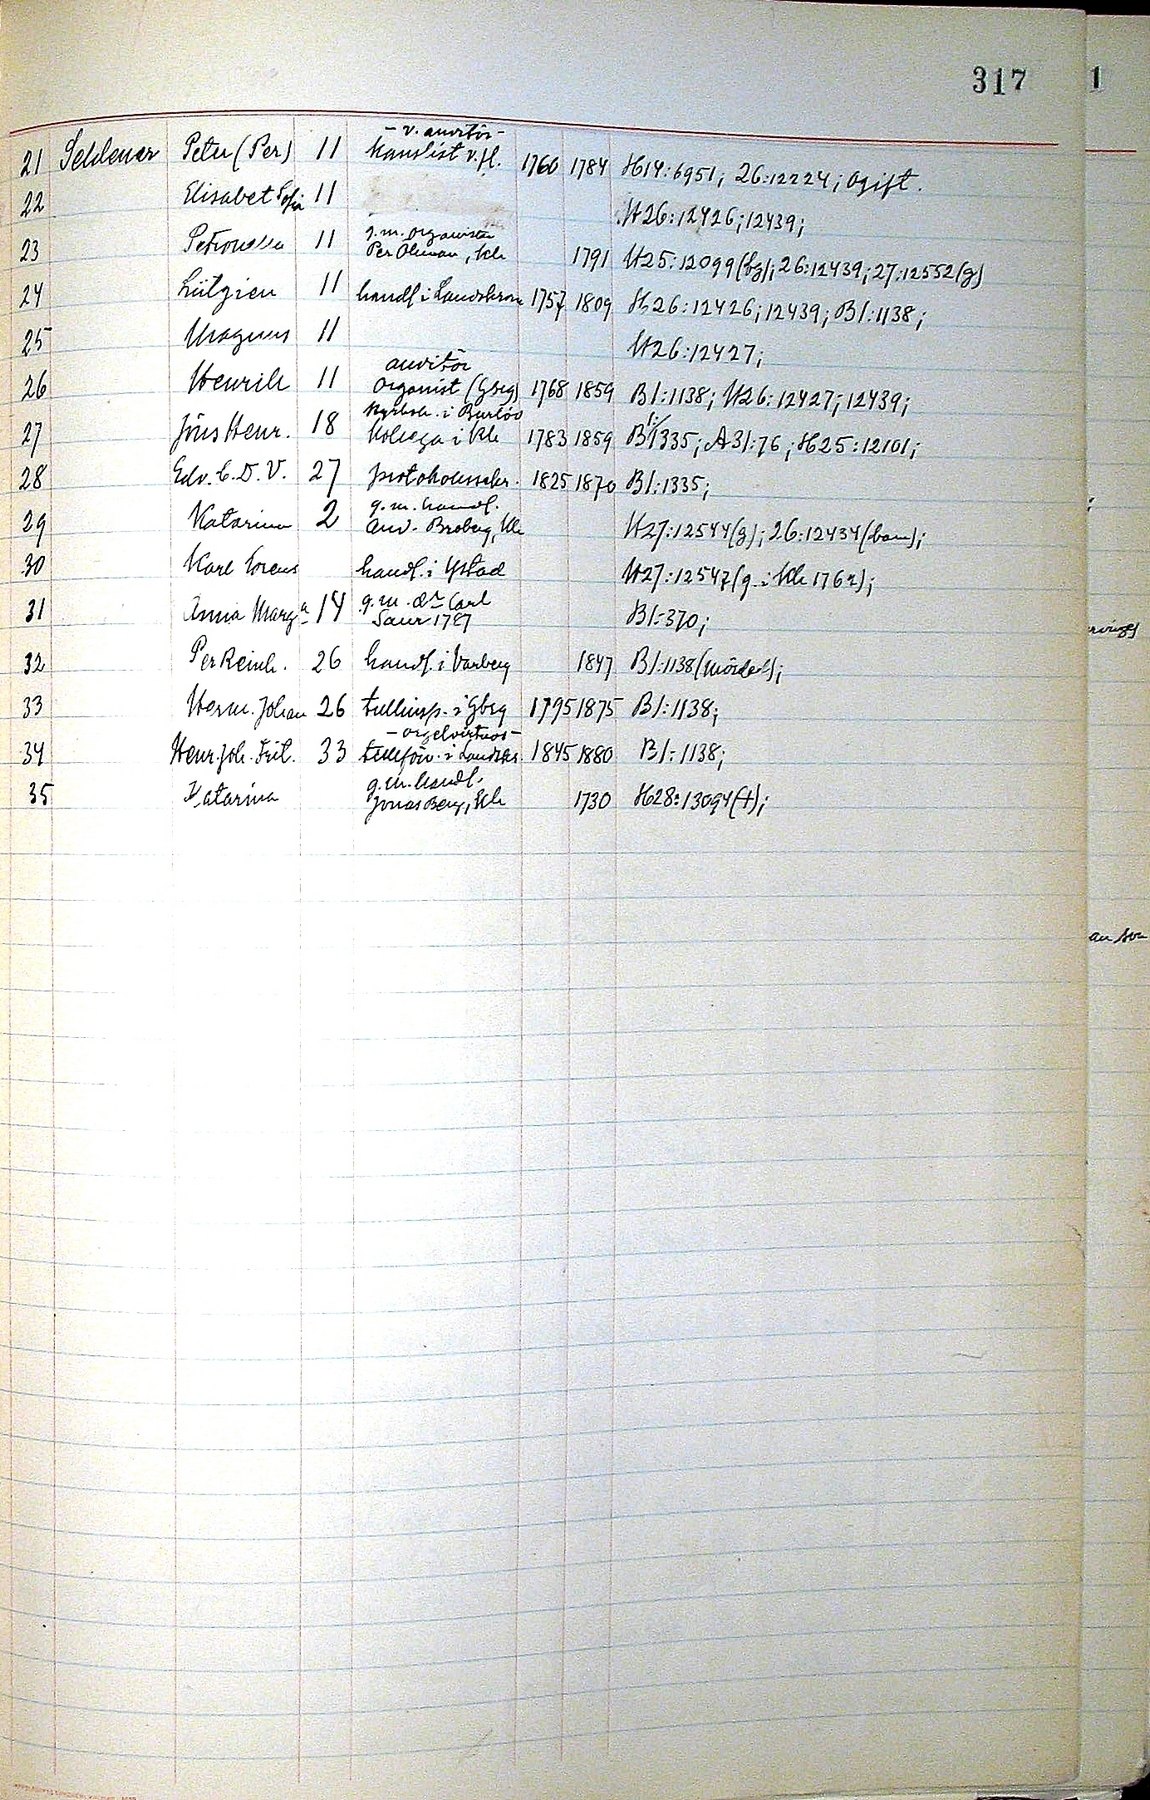 317
21 Seldener Peter (Per) 11 - v. auditör - Kanslist v. fl. 1760 1784 H14:6951; 26:12224; Ogift.
22 Elisabet Sofia 11 H26:12426; 12439;
23 Petronella 11 g.m. organisten Per Åhman, Kle 1791 H25:12099(bg); 26:12439; 27:12552(g)
24 Lütgien 11 handl. i Landskrona 1757 1809 H26:12426; 12439; B1:1138;
25 Magnus 11 H26:12427;
26 Henrik 11 auditör Organist (Gbg) 1768 1859 B1:1138; H26:12427; 12439;
27 Jöns Henr. 18 Kyrkoh. i Burlöv Kollega i Kle 1783 1859 B1:1335; A31:76; H25:12101;
28 Edv. C. D. V. 27 protokollssekr. 1825 1870 B1:1335;
29 Katarina 2 g.m. handl. And. Broberg, Kle H27:12544(g); 26:12434(barn);
30 Karl Lorens handl. i Ystad H27:12547(g. i Kle 1762);
31 Anna Marg:a 14 g.m. dr Carl Saur 1787 B1:370;
32 Per Reinh. 26 handl. i Varberg 1847 B1:1138(mördad);
33 Herm. Johan 26 tullinsp. i Gbg 1795 1875 B1:1138;
34 Henr. Joh. Frit. 33 - orgelvirtuos - tullförv. i Landskr. 1845 1880 B1:1138;
35 Katarina g.m. handl. Jonas Berg, Kle 1730 H28:13094(†);